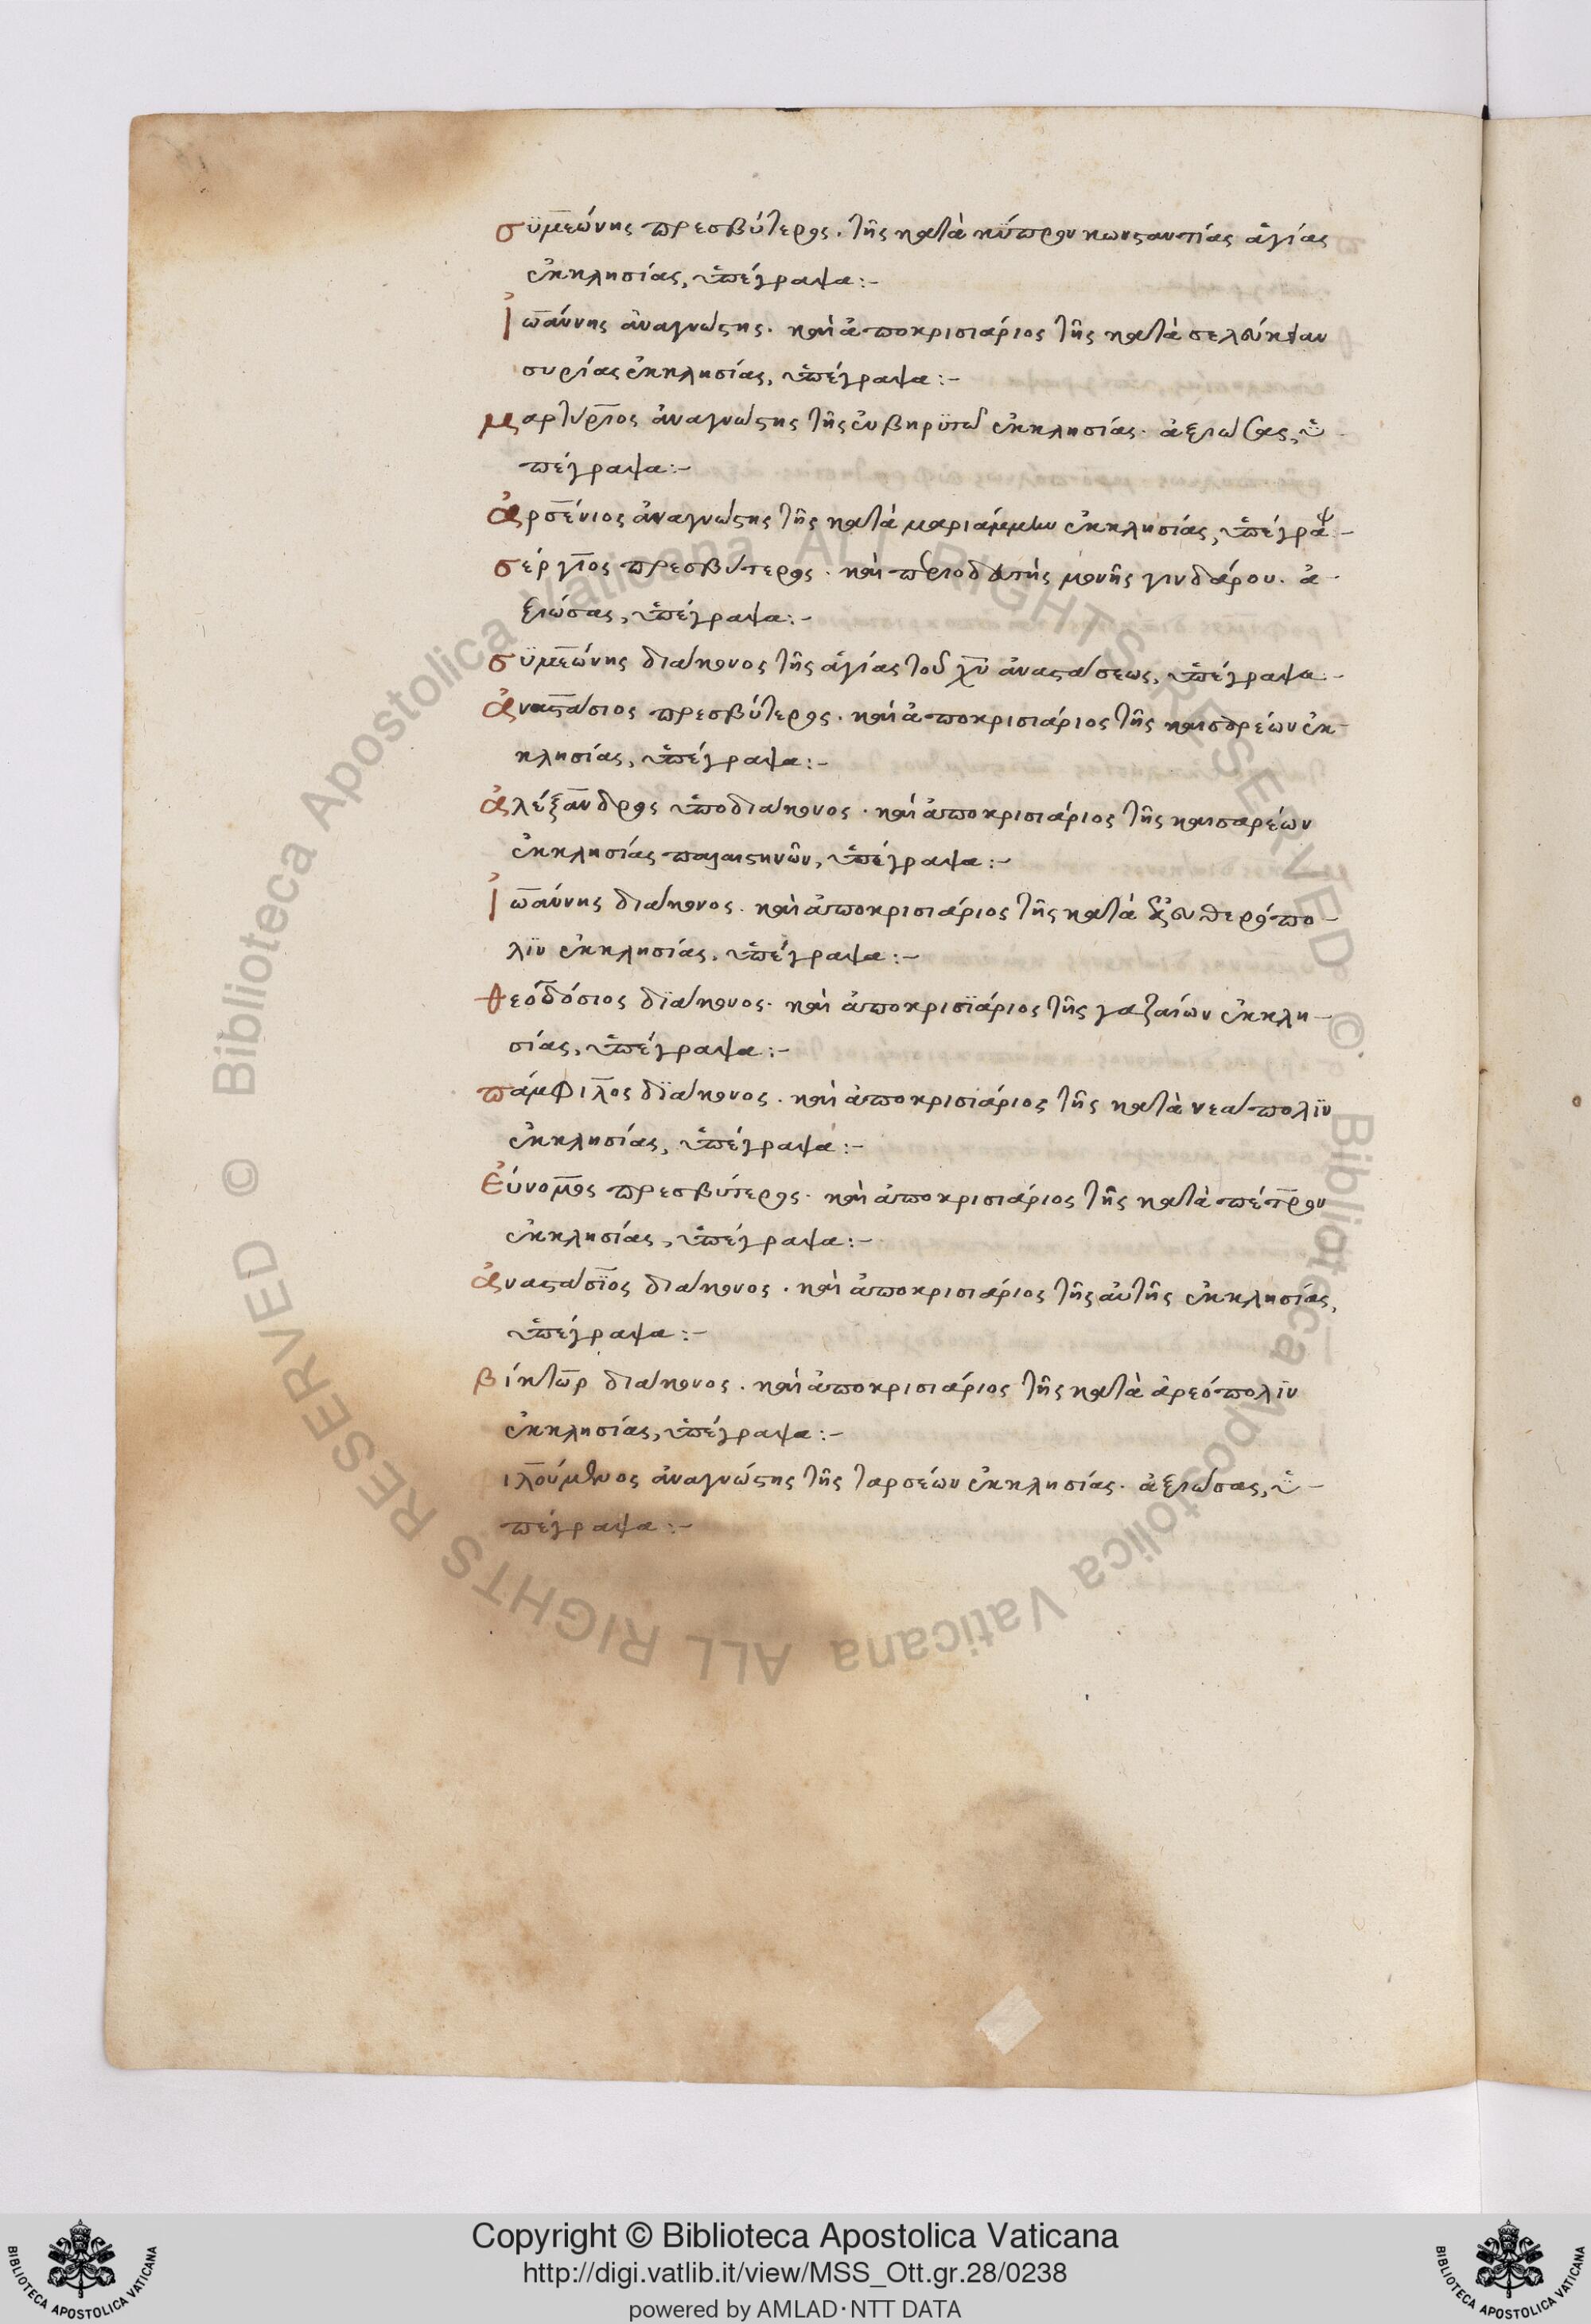 συμεώνης πρεσβύτερος. τῆς κατὰ κύπρον κωνσταντίας ἁγίας
ἐκκλησίας, ὑπέγραψα:-
Ἰωάννης ἀναγνώστης. καὶ ἀποκρισιάριος τῆς κατὰ σελεύκειαν
συρίας ἐκκλησίας, ὑπέγραψα:-
μαρτύριος ἀναγνώστης τῆς ἐν βηρϋτῶ ἐκκλησίας. ἀξιώσας, ὑ-
πέγραψα:-
ἀρσένιος ἀναγνώστης τῆς κατὰ μαριάμμην ἐκκλησίας, ὑπέγραψ-
σέργιος πρεσβύτερος. καὶ περιοδευτὴς μονῆς γινδάρου. ἀ-
ξιώσας, ὑπέγραψα:-
συμεώνης διάκονος τῆς ἁγίας τοῦ χῦ ἀναστάσεως, ὑπέγραψα:-
ἀναστάσιος πρεσβύτερος. καὶ ἀποκρισιάριος τῆς καισαρέων ἐκ-
κλησίας, ὑπέγραψα:-
ἀλέξανδρος ὑποδιάκονος. καὶ ἀποκρισιάριος τῆς καισαρέων
ἐκκλησίας παλαιστηνῶν, ὑπέγραψα:-
Ἰωάννης διάκονος. καὶ ἀποκρισιάριος τῆς κατὰ ἐλευθερόπο-
λϊν ἐκκλησίας, ὑπέγραψα:-
θεοδόσιος διάκονος. καὶ ἀποκρισϊάριος τῆς γαζαίων ἐκκλη-
σίας, ὑπέγραψα:-
πάμφιλος διάκονος. καὶ ἀποκρισιάριος τῆς κατὰ νεάπολϊν
ἐκκλησίας, ὑπέγραψα:-
Εὐνομος πρεσβύτερος. καὶ ἀποκρισιάριος τῆς κατὰ πέτρον
ἐκκλησίας, ὑπέγραψα:-
ἀναστάσιος διάκονος. καὶ ἀποκρισιάριος τῆς αὐτῆς ἐκκλησίας,
ὑπέγραψα:-
βίκτωρ διάκονος. καὶ ἀποκρισιάριος τῆς κατὰ ἀρεόπολϊν
ἐκκλησίας, ὑπέγραψα:-
ιλούμενος ἀναγνώστης τῆς ταρσέων ἐκκλησίας. ἀξιώσας, ὑ-
πέγραψα:-
© Biblioteca Apostolica Vaticana ALL RIGHTS RESERVED © Biblioteca Apostolica Vaticana ALL RIGHTS RESERVED
Copyright © Biblioteca Apostolica Vaticana
http://digi.vatlib.it/view/MSS_Ott.gr.28/0238
powered by AMLAD·NTT DATA
BIBLIOTECA APOSTOLICA VATICANA
BIBLIOTECA APOSTOLICA VATICANA